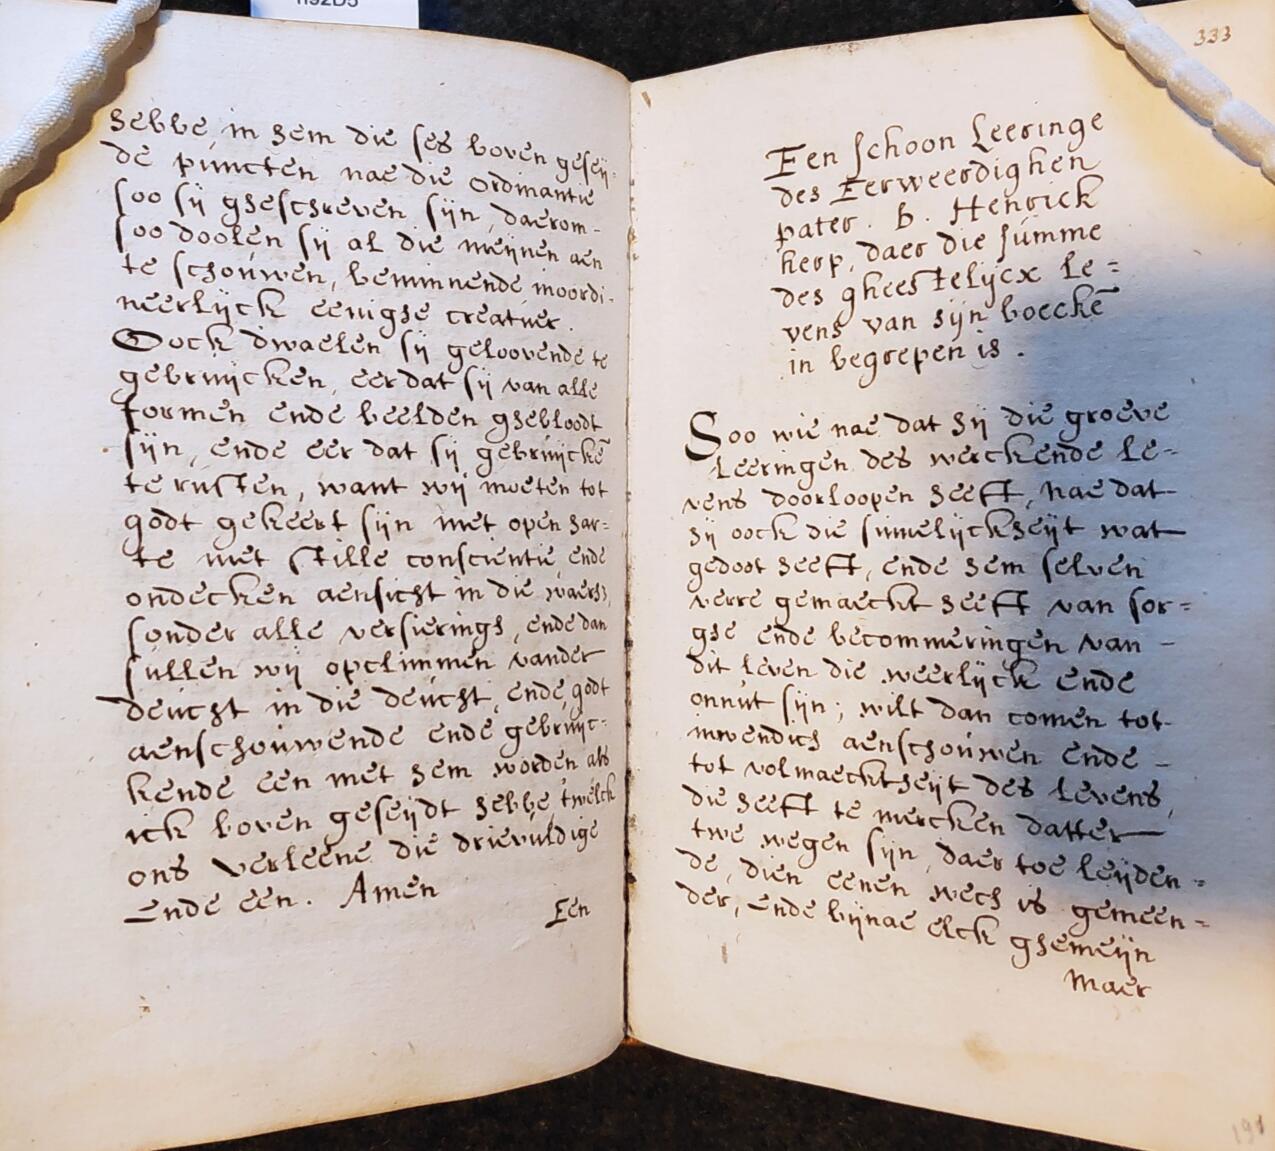 hebbe, in hem die ses boven geseij-
de puncten nae die ordinantie
soo sij ghescreven sijn, daerom-
soo doolen sij al die meijnen aen
te schouwen, beminnende inoordi-
neerlijck eenighe creatuer.
Oock dwaelen sij geloovende te
gebruijcken, eer dat sij van alle
formen ende beelden ghebloodt
sijn, ende eer dat sij gebruijckē
te rusten, want wij moeten tot
godt gekeert sijn met open har=
te met stille conscientie ende
ondecken aensicht in die waerh,
sonder alle versierings, ende dan
sullen wij opclimmen vander
deucht in die deucht, ende, godt
aenschouwende ende gebruijc-
kende een met hem worden als
ick boven geseijdt hebbe, twelck
ons verleene die drievuldige
Ende een. Amen
Een
333
Een schoon Leeringe
des Eerweerdighen
pater. b. Henrick
herp, daer die summe
des gheestelijcx le=
vens van sijn boeckē
in begrepen is.
Soo wie nae dat hij die groeve
leeringen des werckende le-
vens doorloopen heeft, nae dat-
hij oock die sinnelijckheijt wat
gedoot heeft, ende hem selven
verre gemaeckt heeft van sor=
ghe ende becommeringen van-
dit leven die weerlijck ende
onnut sijn; wilt dan comen tot-
inwendich aenschouwen ende-
tot volmaecktheijt des levens,
die heeft te mercken datter
twe wegen sijn daer toe leijden=
de, dien eenen wech is gemeen=
der, ende bijnae elck ghemeijn
Maer
191